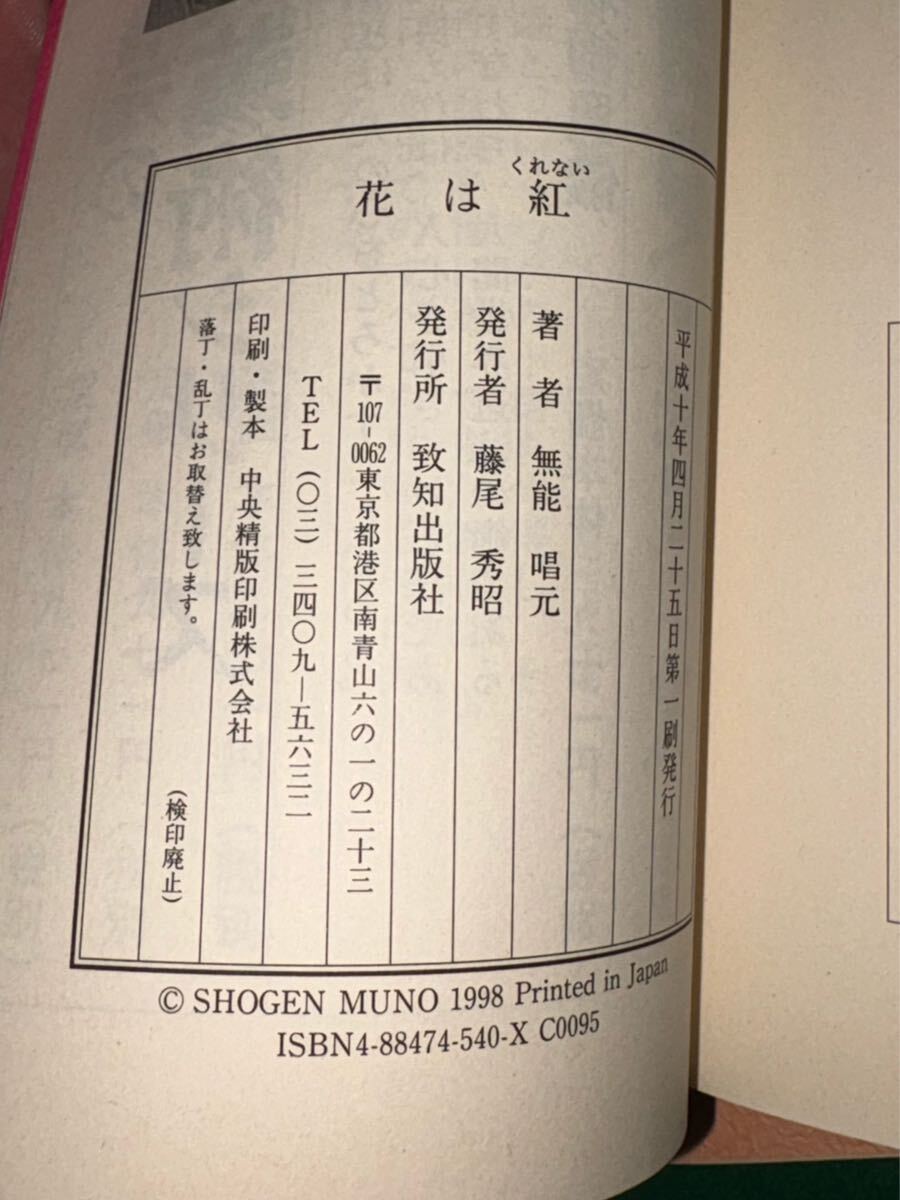 花は紅
くれない
平成十年四月二十五日第一刷発行
著者 無能 唱元
発行者 藤尾 秀昭
発行所 致知出版社
〒107-0062 東京都港区南青山六の一の二十三
TEL（〇三）三四〇九―五六三二
印刷・製本 中央精版印刷株式会社
落丁・乱丁はお取替え致します。
（検印廃止）
© SHOGEN MUNO 1998 Printed in Japan
ISBN4-88474-540-X C0095